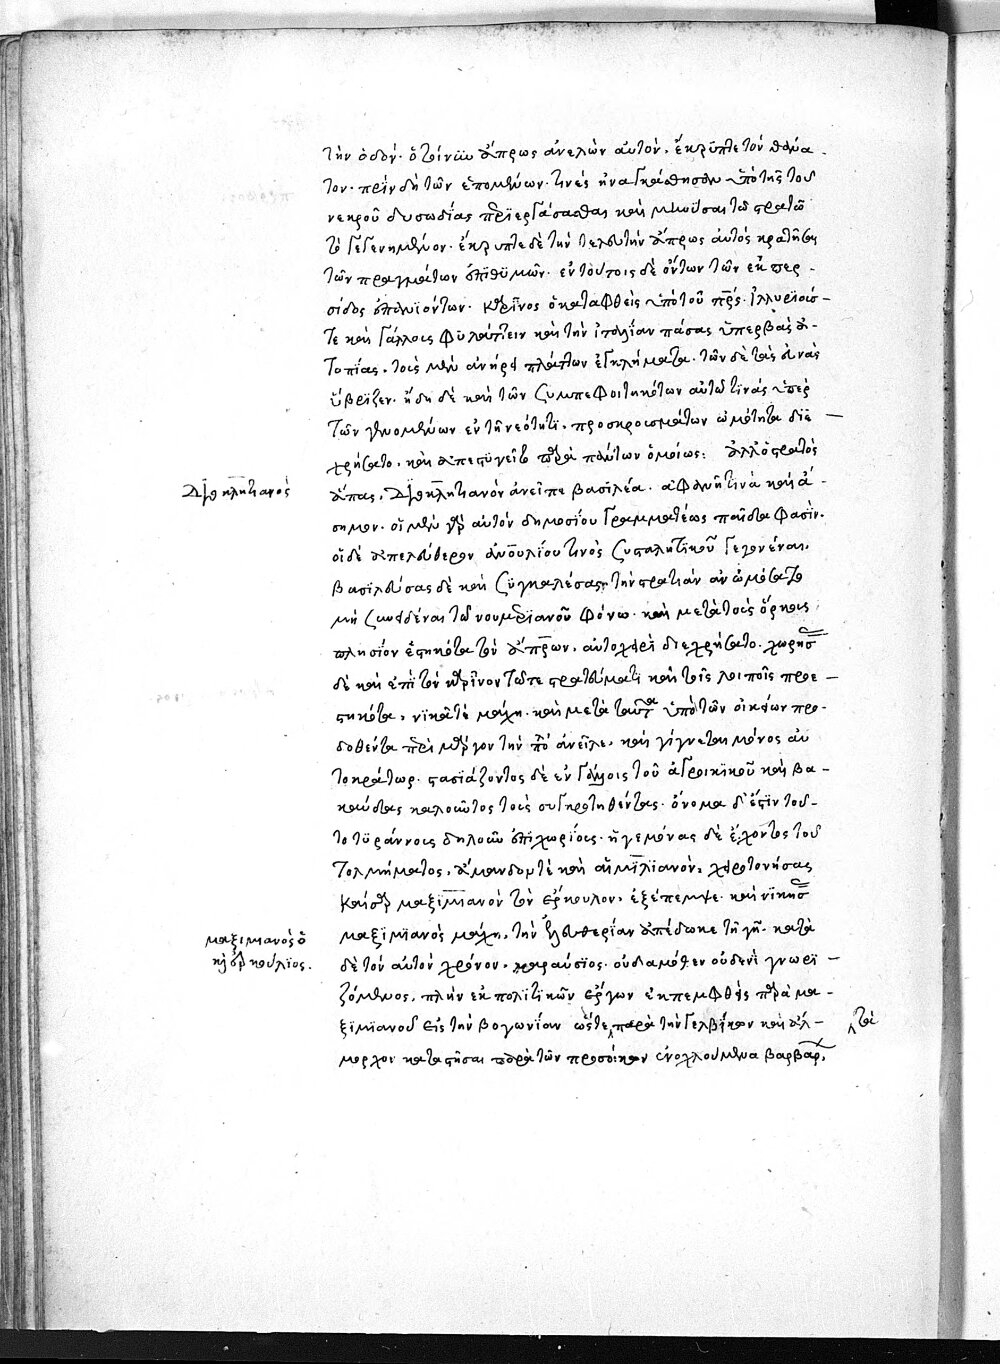 τὴν ὁδόν. ὅτι νέῳ ἄπρως ἀνελὼν αὐτὸν, ἔκρυπτε τὸν θάνα
τον. πρὶν δὴ τῶν ἑπομένων. τινὲς ἠναγκάσθησαν ὑπὸ τῆς τοῦ
νεκροῦ δυσωδίας περιεργάσασθαι καὶ μηνῦσαι τῷ στρατῷ
τὸ γεγενημένον. ἔκρυπτε δὲ τὴν τελευτὴν ἄπρως αὐτὸς κρατῆσαι
τῶν πραγμάτων ἐπιθυμῶν. ἐν τούτοις δὲ ὄντων τῶν ἐκ περ -
σίδος ἐπανιόντων. καρῖνος ὁ καταφθεὶς ὑπὸ τοῦ πρς. ἰλλυριοίς -
τε καὶ γάλλοις φυλάττειν καὶ τὴν ἰταλίαν πάσας ὑπερβὰς ἀ -
τοπίας. τοῖς μὲν ἀνήρει πλάττων ἐγκλήματα. τῶν δὲ τὰς εὐνὰς
ὕβριζεν. ἤδη δὲ καὶ τῶν συμπεφοιτηκότων αὐτῷ τινὰς ὑπὲρ
τῶν γενομένων ἐν τῇ νεότητι. προσκρουσμάτων ὠμότητα διε -
χρήσατο. καὶ ἀπεστυγεῖτο παρὰ πάντων ὁμοίως: ἀλλ' ὁ στρατὸς
Διοκλητιανὸς
ἅπας. Διοκλητιανὸν ἀνεῖπε βασιλέα. ἀφανῆ τινὰ καὶ ἄ -
σημον. οἱ μὲν γὰρ αὐτὸν δημοσίου γραμματέως παῖδα φασὶν.
οἱ δὲ ἀπελεύθερον ἀνουλίου τινὸς συγκλητικοῦ γεγονέναι.
βασιλεύσας δὲ καὶ συγκαλέσας τὴν στρατιὰν ἀνωμόσατο
μὴ συνειδέναι τῷ νουμεριανοῦ φόνῳ. καὶ μετὰ τοὺς ὅρκους
πλησίον ἑστηκότα τὸν ἄπρων. αὐτοχειρὶ διεχρήσατο. χωρησ
δὲ καὶ ἐπὶ τὸν καρῖνον τῷ τε στρατεύματι καὶ τοῖς λοιποῖς προε -
στηκότα. νικᾶτε μάχῃ. καὶ μετὰ ταῦτα ὑπὸ τῶν οἰκείων προ -
δοθέντα περὶ μάργον τὴν πό ἀνεῖλε. καὶ γίγνεται μόνος αὐ
τοκράτωρ. στασιάζοντος δὲ ἐν γάλλοις τοῦ ἀγροικικοῦ καὶ βα -
καύδας καλοῦντος τοὺς συγκροτηθέντας. ὄνομα δ' ἐστὶν τοῦ -
το τυράννους δηλοῦν ἐπιχωρίους. ἡγεμόνας δὲ ἔχοντος τοῦ
τολμήματος. ἄμανδόν τε καὶ αἰμιλιανὸν. χειροτονήσας
καίσαρ μαξιμιανὸν τὸν ἑρκουλον. ἐξέπεμψε. καὶ νικησ
μαξιμιανὸς ὁ
κὴ ἑρκούλιος.
μαξιμιανὸς μάχῃ. τὴν ἐλευθερίαν ἀπέδωκε τῇ γῇ. κατὰ
δὲ τὸν αὐτὸν χρόνον. καραύσιος. οὐδαμόθεν οὐδενὶ γνωρι -
ζόμενος. πλὴν ἐκ πολιτικῶν ἔργων ἐκπεμφθεὶς παρὰ μα -
ξιμιανοῦ εἰς τὴν βογωνίαν ὥστε παρὰ τὴν γελβίκαν καὶ ἀλ -
τὰ
μορχοι καταστῆσαι παρὰ τῶν προσοίκων ἐνοχλούμενα βαρβάρ.